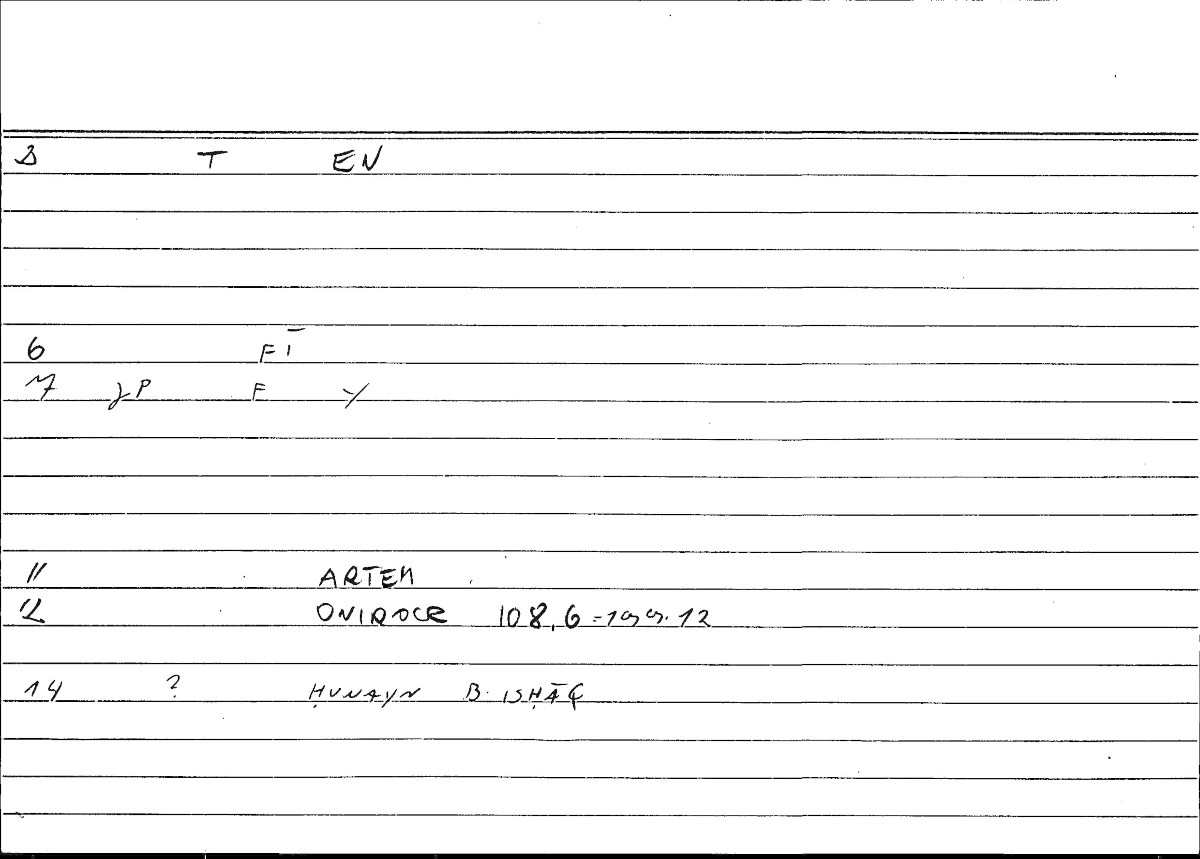 T EN
6 FĪ
7 P F
11 ARTEM
12 ONIROCR 108,6
14 ? ḤUNAYN B. ISḤĀQ